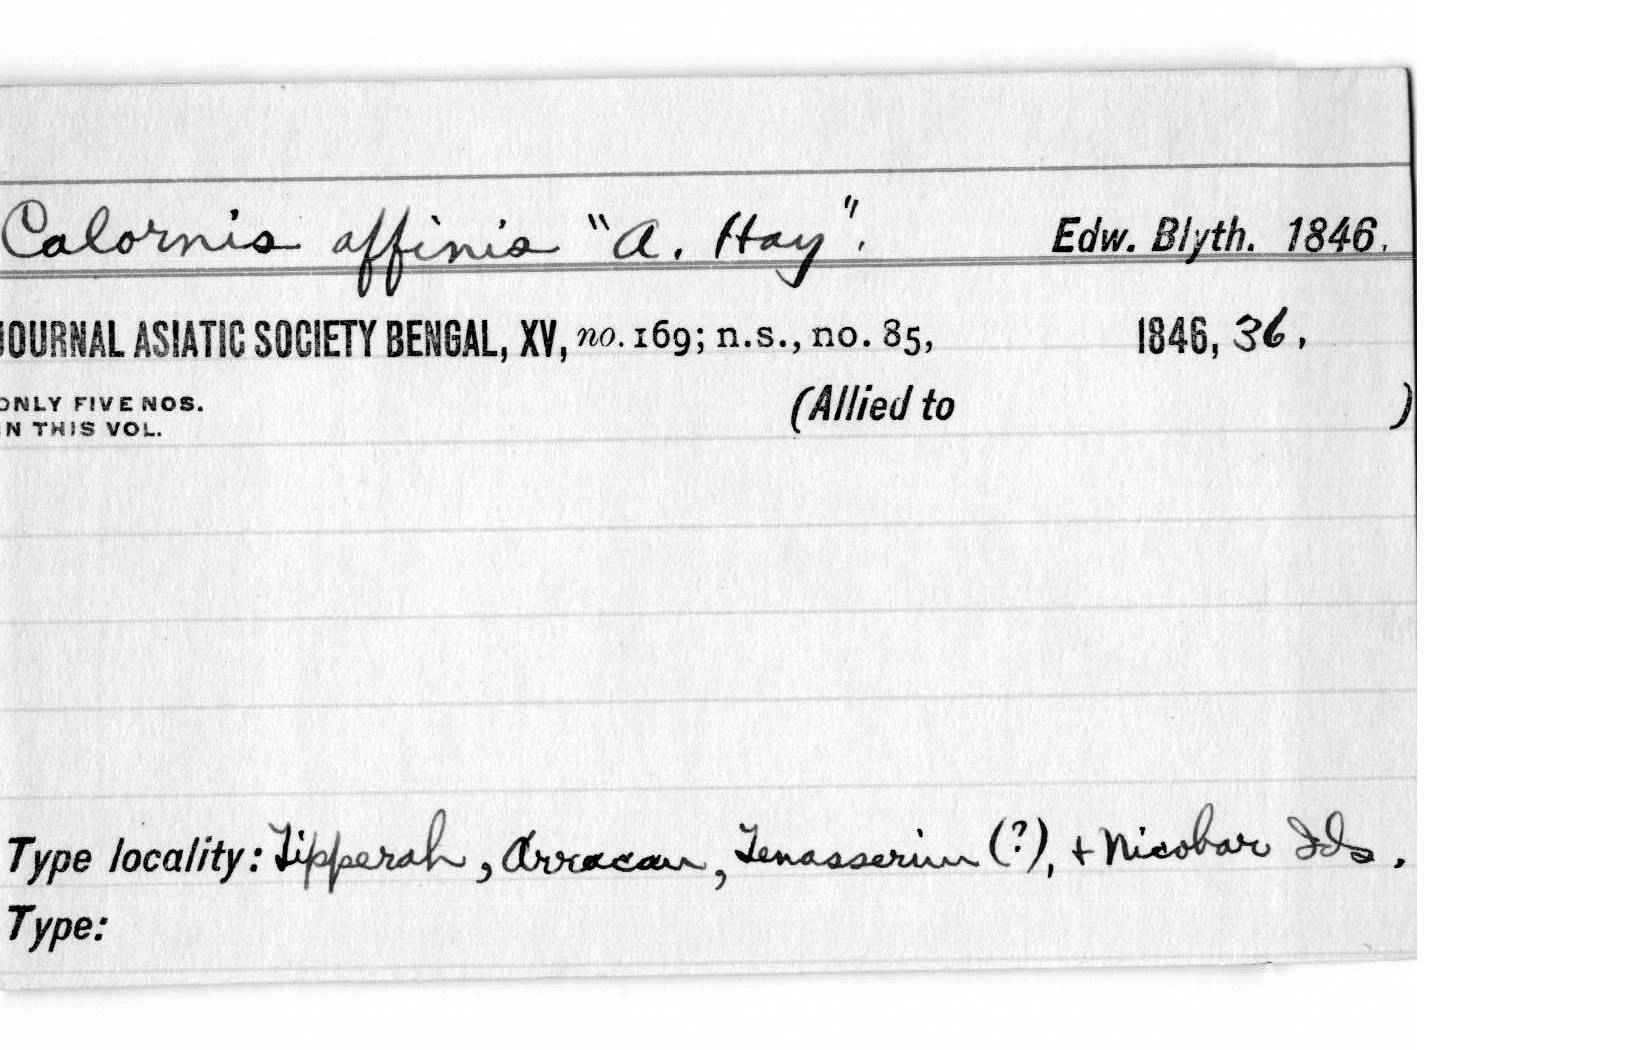 Calornis affinis "A. Hay". Edw. Blyth. 1846.
JOURNAL ASIATIC SOCIETY BENGAL, XV, no. 169; n.s., no. 85, 1846, 36.
ONLY FIVE NOS. (Allied to )
IN THIS VOL.
Type locality: Tipperah, Arracan, Tenasserim (?), + Nicobar Ids.
Type: